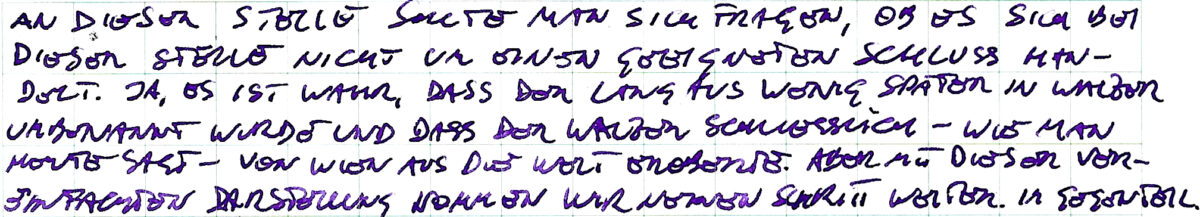 AN DIESER STELLE SOLLTE MAN SICH FRAGEN, OB ES SICH BEI
DIESER STELLE NICHT UM EINEN GEEIGNETEN SCHLUSS HAN-
DELT. JA, ES IST WAHR, DASS DER LANGAUS WENIG SPÄTER IN WALZER
UMBENANNT WURDE UND DASS DER WALZER SCHLIESSLICH – WIE MAN
HEUTE SAGT – VON WIEN AUS DIE WELT EROBERTE. ABER MIT DIESER VER-
EINFACHTEN DARSTELLUNG KOMMEN WIR KEINEN SCHRITT WEITER. IM GEGENTEIL.